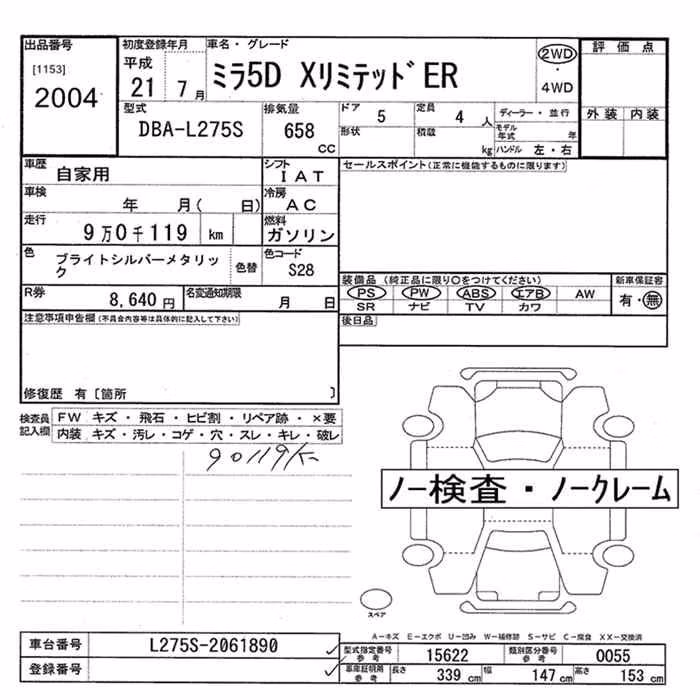 出品番号
[1153]
2004
初度登録年月
平成
21 7月
車名・グレード
ミラ5D XリミテッドER
2WD
・
4WD
評価点
外装 内装
型式
DBA-L275S
排気量
658
CC
ドア 5
定員 4 人
形状
積載 kg
ディーラー・並行
モデル年式 年
ハンドル 左・右
車歴
自家用
シフト
IAT
セールスポイント(正常に機能するものに限ります)
車検
年 月( 日)
冷房
AC
走行
9万0千119 km
燃料
ガソリン
色
ブライトシルバーメタリック
色替
色コード
S28
装備品 (純正品に限り○をつけてください)
新車保証書
PS PW ABS エアB AW
SR ナビ TV カワ
有・無
R券
8,640 円
名変通知期限
月 日
後日品
注意事項申告欄(不具合内容等は具体的に記入して下さい)
修復歴 有〔箇所 〕
検査員記入欄
FW キズ・飛石・ヒビ割・リペア跡・×要
内装 キズ・汚レ・コゲ・穴・スレ・キレ・破レ
90119K
ノー検査・ノークレーム
スペア
A-キズ E-エクボ U-凹み W-補修跡 S-サビ C-腐食 XX-交換済
車台番号 L275S-2061890
型式指定番号参考 15622
類別区分番号参考 0055
登録番号
車庫証明用参考 長さ 339 cm 幅 147 cm 高さ 153 cm